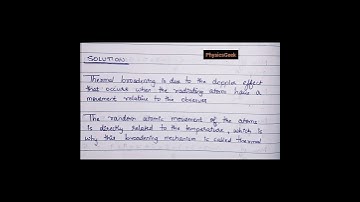 PhysicsGeek
SOLUTION
Thermal broadening is due to the doppler effect
that occurs when the radiating atoms have a
movement relative to the observer
The random atomic movement of the atoms
is directly related to the temperature, which is
why this broadening mechanism is called Thermal